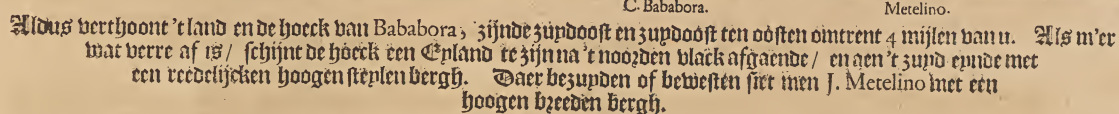 C. Bababora. Metelino.
Aldus verthoont 't land en de hoeck van Bababora, zijnde zuydoost en zuydoost ten oosten omtrent 4 mijlen van u. Als m'er
wat verre af is / schijnt de hoeck een Eyland te zijn na 't noorden vlack afgaende / en aen 't zuyd eynde met
een reedelijcken hoogen steylen bergh. Daer bezuyden of bewesten siet men J. Metelino met een
hoogen breeden bergh.